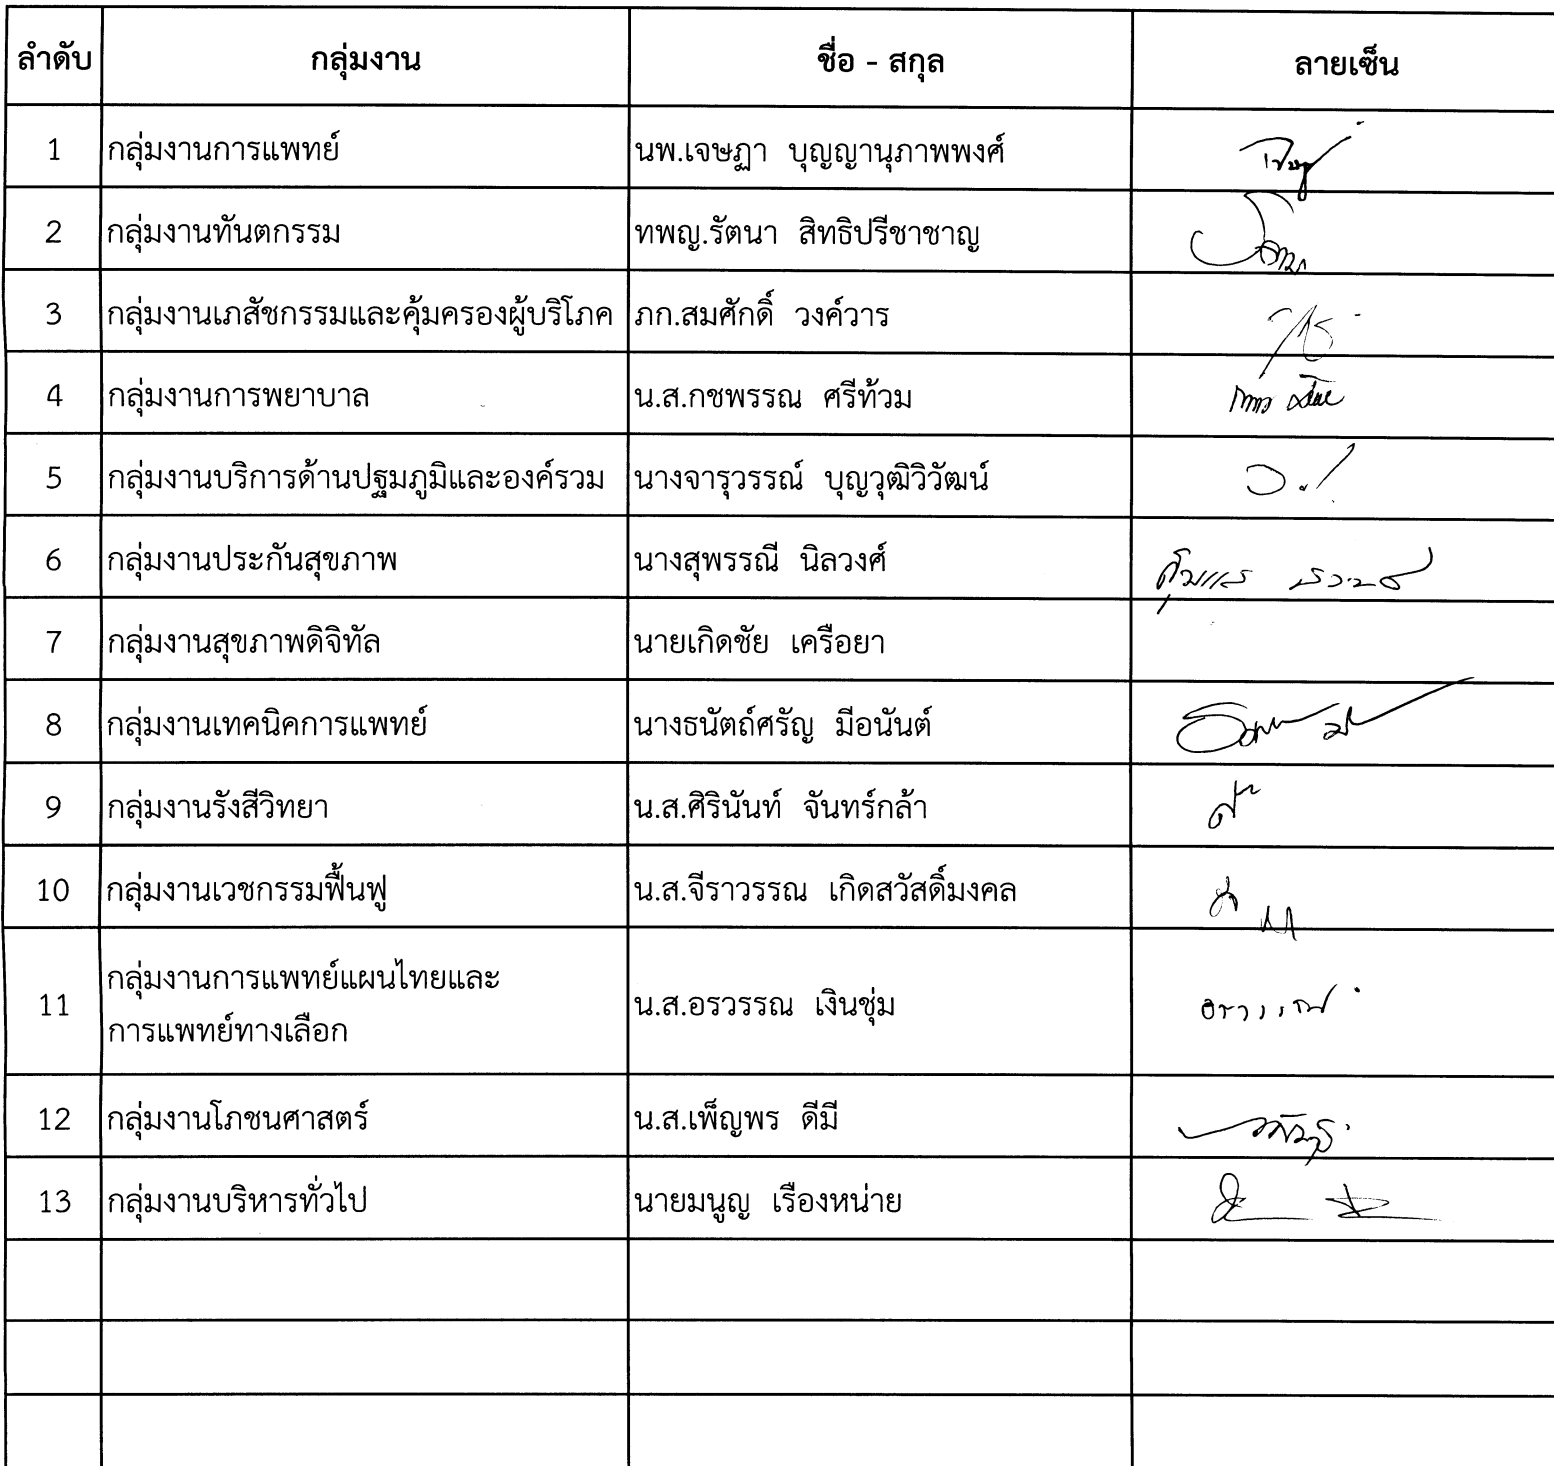 ลำดับ กลุ่มงาน ชื่อ - สกุล ลายเซ็น
1 กลุ่มงานการแพทย์ นพ.เจษฏา บุญญานุภาพพงศ์
2 กลุ่มงานทันตกรรม ทพญ.รัตนา สิทธิปรีชาชาญ
3 กลุ่มงานเภสัชกรรมและคุ้มครองผู้บริโภค ภก.สมศักดิ์ วงค์วาร
4 กลุ่มงานการพยาบาล น.ส.กชพรรณ ศรีท้วม
5 กลุ่มงานบริการด้านปฐมภูมิและองค์รวม นางจารุวรรณ์ บุญวุฒิวิวัฒน์
6 กลุ่มงานประกันสุขภาพ นางสุพรรณี นิลวงศ์
7 กลุ่มงานสุขภาพดิจิทัล นายเกิดชัย เครือยา
8 กลุ่มงานเทคนิคการแพทย์ นางธนัตถ์ศรัญ มีอนันต์
9 กลุ่มงานรังสีวิทยา น.ส.ศิรินันท์ จันทร์กล้า
10 กลุ่มงานเวชกรรมฟื้นฟู น.ส.จีราวรรณ เกิดสวัสดิ์มงคล
11 กลุ่มงานการแพทย์แผนไทยและ
การแพทย์ทางเลือก น.ส.อรวรรณ เงินชุ่ม อรวรรณ
12 กลุ่มงานโภชนศาสตร์ น.ส.เพ็ญพร ดีมี
13 กลุ่มงานบริหารทั่วไป นายมนูญ เรืองหน่าย